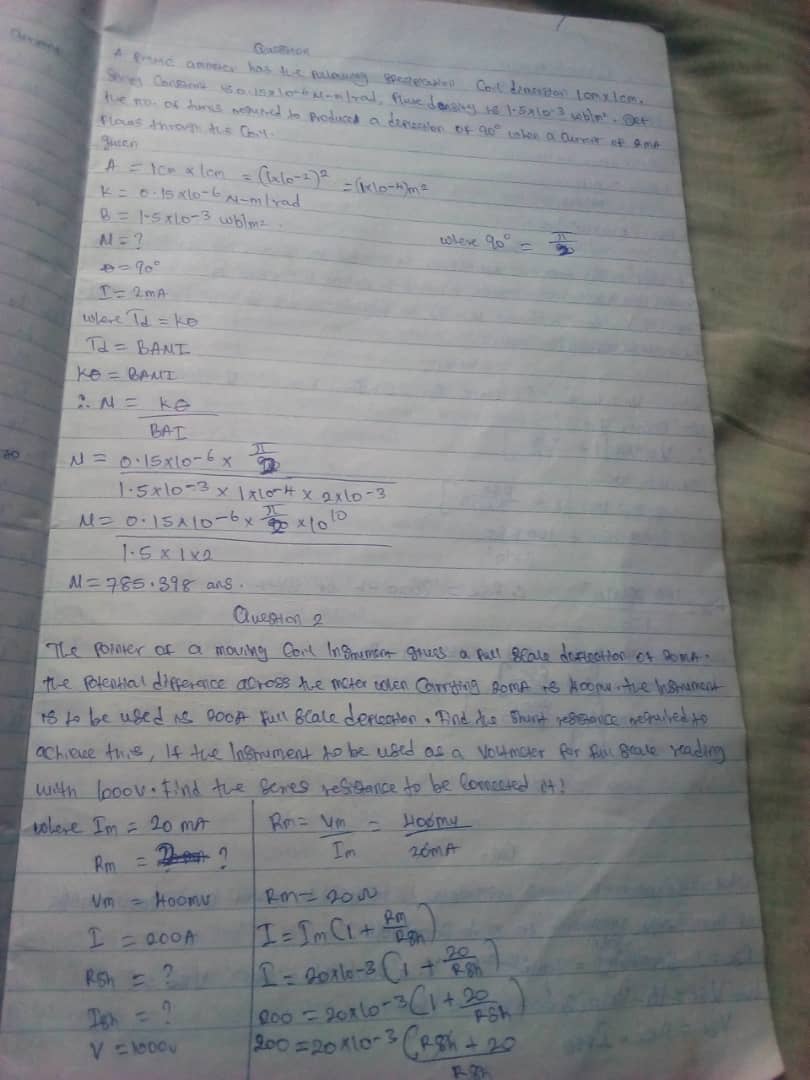 Question
A PMMC ammeter has the following specification Coil dimension 1cm x 1cm.
Spring Constant is 0.15x10-6 N-m/rad, Flux density is 1.5x10-3 wb/m². Det
the no. of turns required to produced a deflection of 90° when a Current of 2mA
flows through the Coil.
given
A = 1cm x 1cm = (1x10-2)² = (1x10-4)m²
K = 0.15x10-6 N-m/rad
B = 1.5x10-3 wb/m2.
N = ?
where 90° = π/2
θ = 90°
I = 2mA
where Td = Kθ
Td = BANI
Kθ = BANI
∴ N = Kθ
BAI
N = 0.15x10-6 x π/2
1.5x10-3 x 1x10-4 x 2x10-3
N = 0.15x10-6 x π/2 x10 10
1.5 x 1 x 2
N = 785.398 ans.
Question 2
The Pointer of a moving Coil Instrument gives a full Scale deflection of 20mA.
the Potential difference across the meter when Carrying 20mA is 400mv. the Instrument
is to be used is 200A full Scale deflection. Find the Shunt resistance required to
achieve this, If the Instrument to be used as a Voltmeter for full Scale reading
with 1000v. Find the Series resistance to be Connected it?
where Im = 20 mA
Rm = ?
Vm = 400mv
I = 200A
Rsh = ?
Ish = ?
V = 1000v
Rm = Vm = 400mv
Im 20mA
Rm = 20Ω
I = Im(1 + Rm/Rsh)
I = 20x10-3(1 + 20/Rsh)
200 = 20x10-3(1 + 20/Rsh)
200 = 20x10-3(Rsh + 20
Rsh